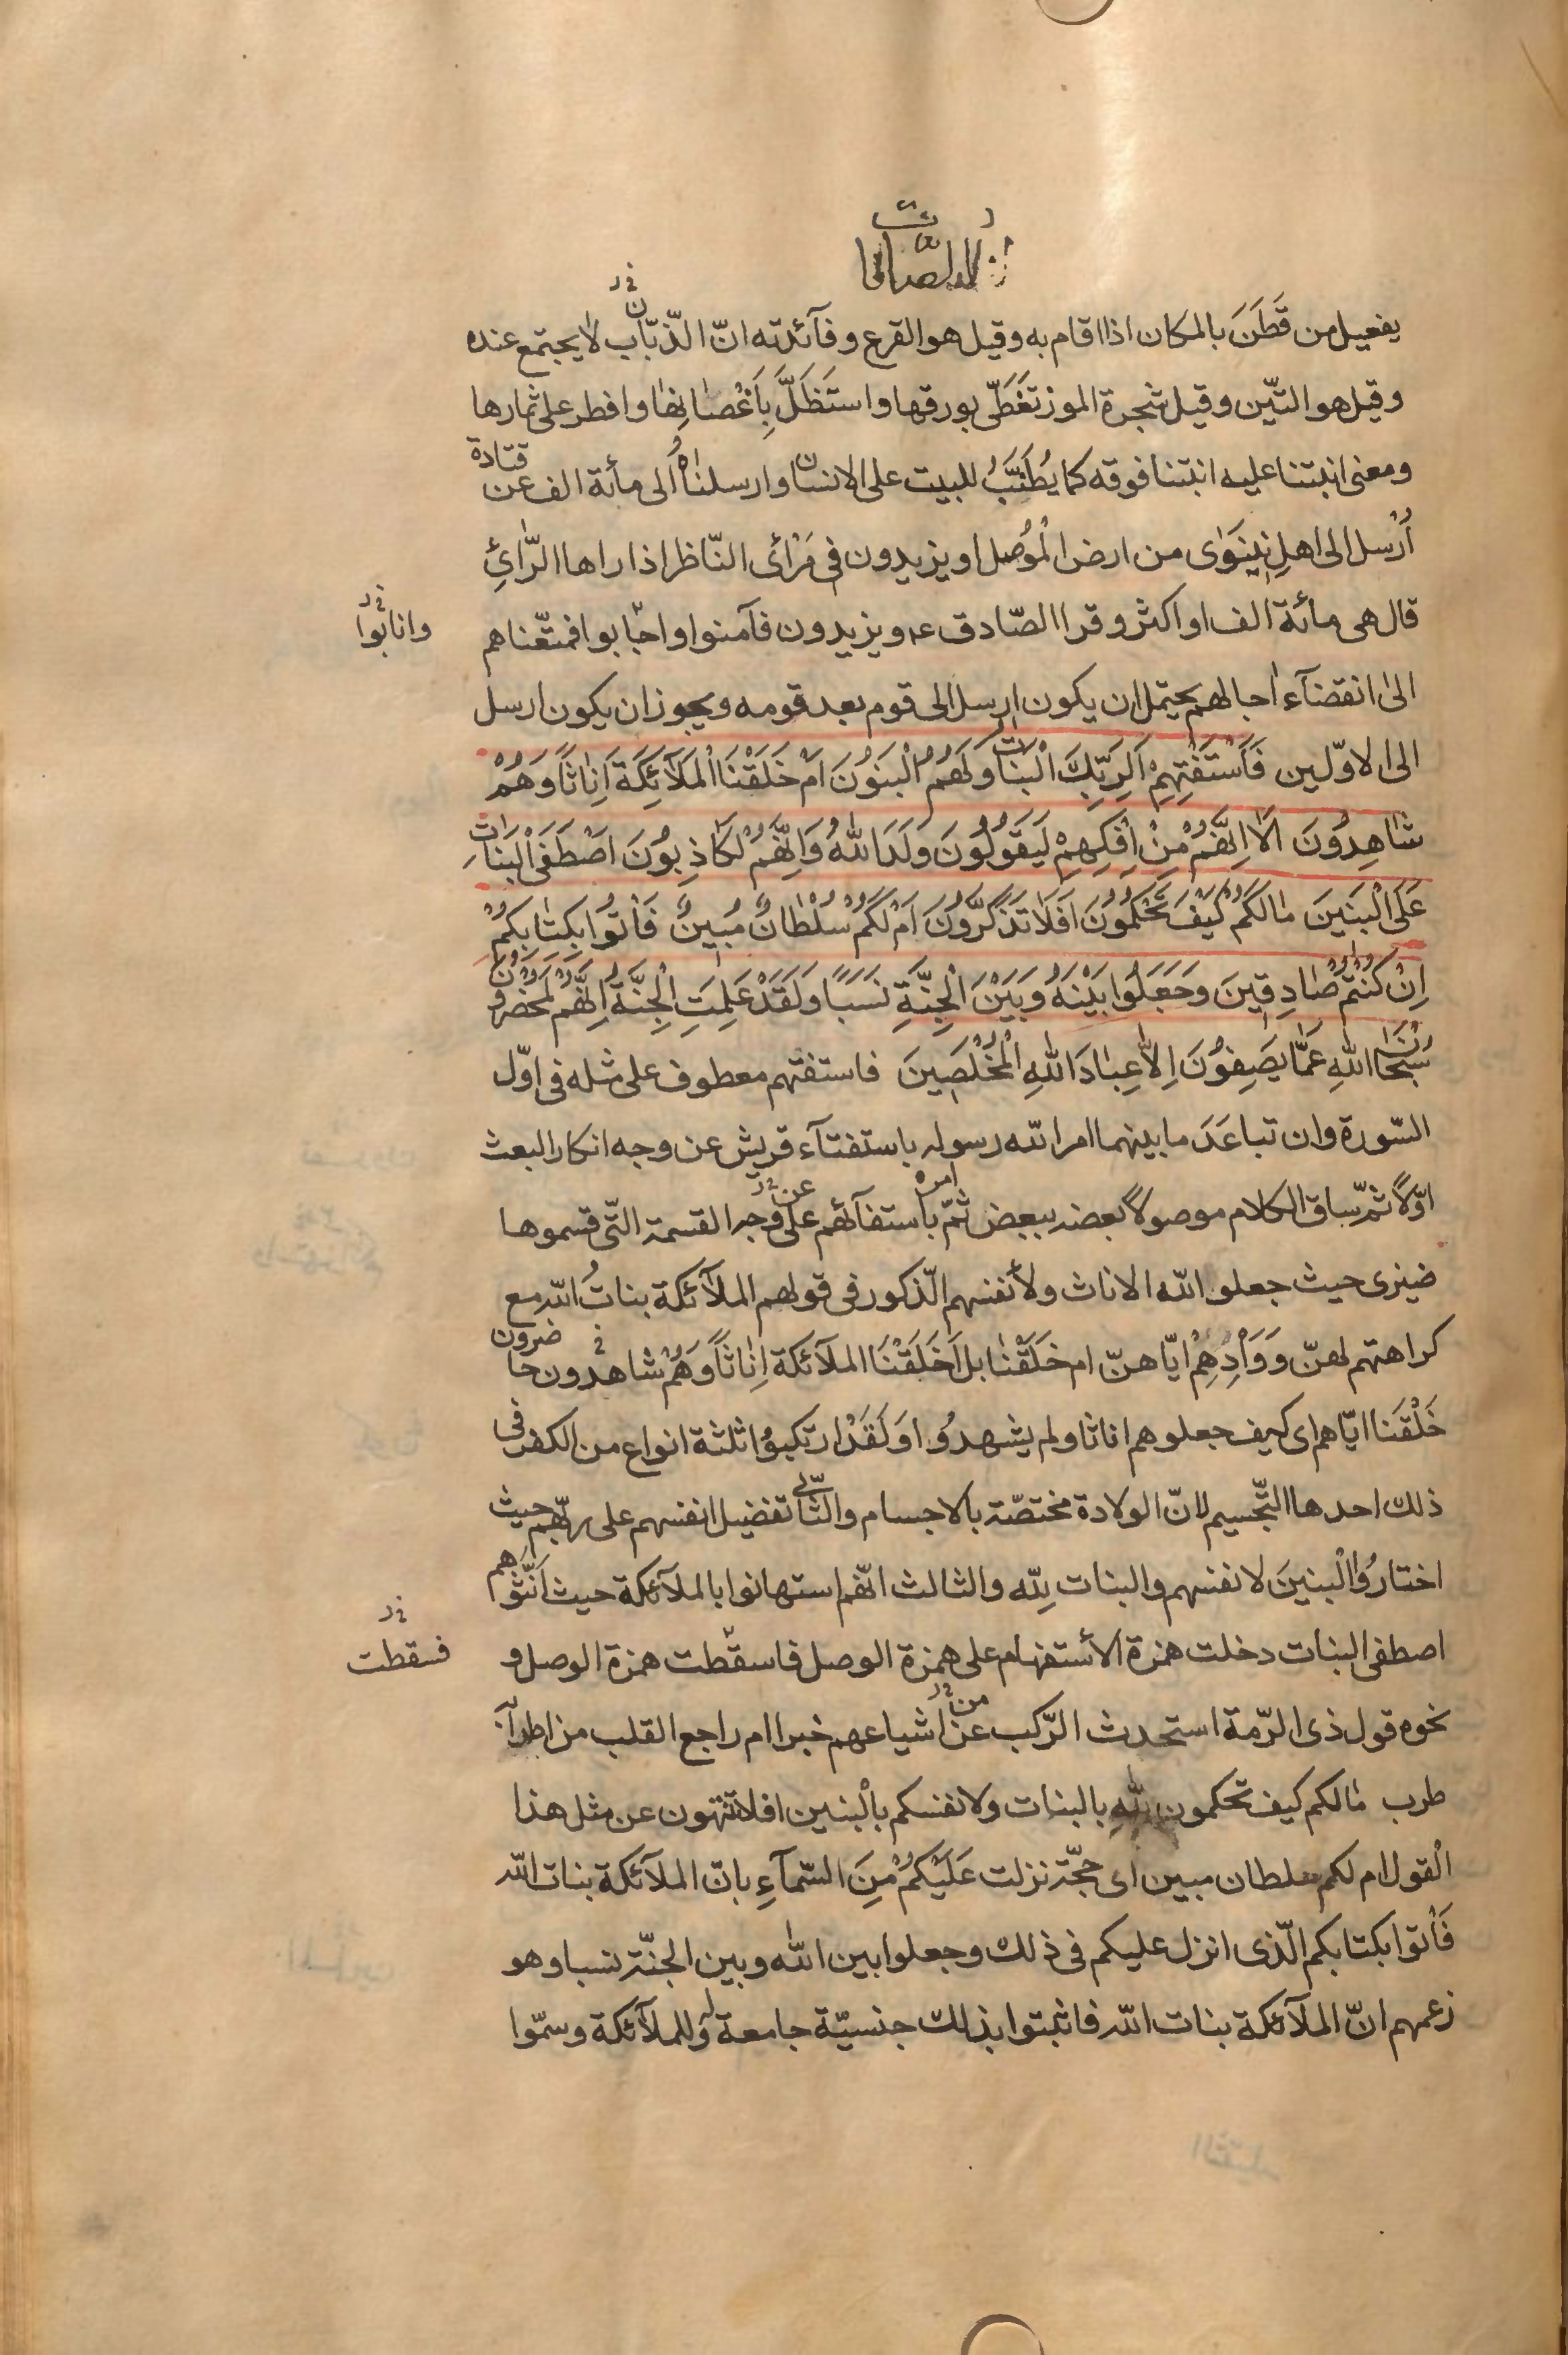 الصافات
يفعيل من قَطَنَ بالمكان اذا اقام به وقيل هو القرع وفآئدته انّ الذّبّاب لا يجتمع عنده
وقيل هو التّين وقيل شجرة الموز تَغَطّى بورقها واستَظَلَّ بِاَغْصٰانِهٰا وافطر على ثمارها
ومعنى انبتنا عليه انبتنا فوقه كما يُطَنَّبُ للبيت على الانسان وارسلناهُ الى مأئة الف عن قتادة
اُرْسل الى اهلِ نِينَوٰى من ارض الْمُوصل او يزيدون فى مَرْأى النّاظر اذا راها الرّائِ
قال هى مائة الف او اكثر وقرا الصّادق ع ويزيدون فآمنوا واجابوا فمتّعناهم
وانابوا
الىٰ انقضآء اجالهم يحتمل ان يكون ارسل الى قوم بعد قومه ويجوز ان يكون ارسل
الى الاوّلين فَاسْتَفْتِهِمْ اَلِرَبِّكَ الْبَنٰاتُ وَلَهُمُ الْبَنُونَ اَمْ خَلَقْنَا الْمَلآئِكَةَ اِنٰاثًا وَهُمْ
شٰاهِدُونَ اَلٰا اِنَّهُمْ مِنْ اِفْكِهِمْ لَيَقُولُونَ وَلَدَ اللّٰهُ وَاِنَّهُمْ لَكٰاذِبُونَ اَصْطَفَى الْبَنٰاتِ
عَلَى الْبَنينَ مٰا لَكُمْ كَيْفَ تَحْكُمُونَ اَفَلٰا تَذَكَّرُونَ اَمْ لَكُمْ سُلْطٰانٌ مُبينٌ فَاْتُوا بِكِتٰابِكُمْ
اِنْ كُنْتُمْ صٰادِقينَ وَجَعَلُوا بَيْنَهُ وَبَيْنَ الْجِنَّةِ نَسَبًا وَلَقَدْ عَلِمَتِ الْجِنَّةُ اِنَّهُمْ لَمُحْضَرُونَ
سُبْحٰانَ اللّٰهِ عَمّٰا يَصِفُونَ اِلاّٰ عِبٰادَ اللّٰهِ الْمُخْلَصينَ فاستفتهم معطوف على مثله فى اوّل
السّورة وان تباعَدَ ما بينهما امر اللّه رسوله باستفتآء قريش عن وجه انكار البعث
اوّلاً ثمّ ساق الكلام موصولاً بعضه ببعض ثمّ امره باستفتآئهم على عن وجه القسمة الّتى قسموها
ضيزى حيث جعلوا اللّه الاناث ولأنفسهم الذّكور فى قولهم الملآئكة بناتُ اللّه مع
كراهتهم لهنّ وَوَاْدِهِمْ ايّاهنّ ام خَلَقْنٰا بل اَخَلَقْنَا الملآئكة اِنٰاثًا وَهُمْ شاهدون حاضرون
خَلْقَنا ايّاهم اى كيف جعلوهم اناثا ولم يشهدوُا وَلَقَدْ ارتكبوُا ثلثة انواع من الكفر فى
ذلك احدها التّجْسيم لانّ الولادة مختصّة بالاجسام والثّانى تفضيل انفسهم على ربّهم حيث
اختارُوا الْبنينَ لانفسهم والبنات لِلّه والثالث انّهم استهانوا بالملآئكة حيث اَنَّثُوهم
اصطفى البنات دخلت همزة الأستفهام على همزة الوصل فاسقطت همزة الوصل و
فسقطت
نحوه قول ذى الرّمة استحدث الرّكب عن من اشياعهم خبرا ام راجع القلب من اطرابه
طرب مٰالكم كيف تحكمون للّهِ بالبنات ولانفسكم بالْبنين افلا تنتهون عن مثل هذا
الْقول ام لكم سلطان مبين اى حجّة نزلت عَلَيْكُمْ مِنَ السّمآءِ بانّ الملآئكة بنات اللّه
فَاْتوا بكتابكم الّذى انزل عليكم فى ذلك وجعلوا بين اللّٰه وبين الجنّة نسبا وهو
زعمهم انّ الملآئكة بنات اللّه فاثبتوا بذلك جنسيّة جامعة له وللملآئكة وسمّوا